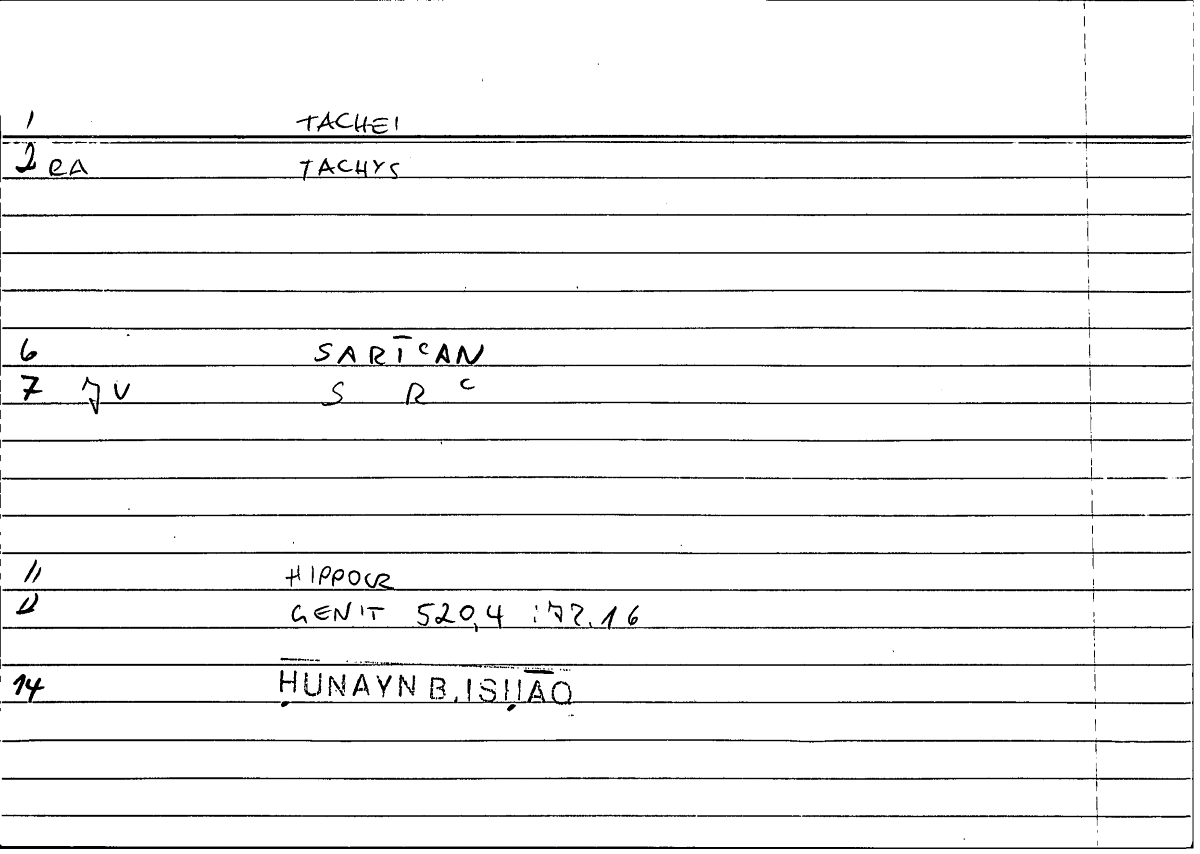 1 TACHEI
2 RA TACHYS
6 SARĪᶜAN
7 JV S R ᶜ
11 HIPPOCR
12 GENIT 520,4 : 72.16
14 ḤUNAYN B. ISḤĀQ